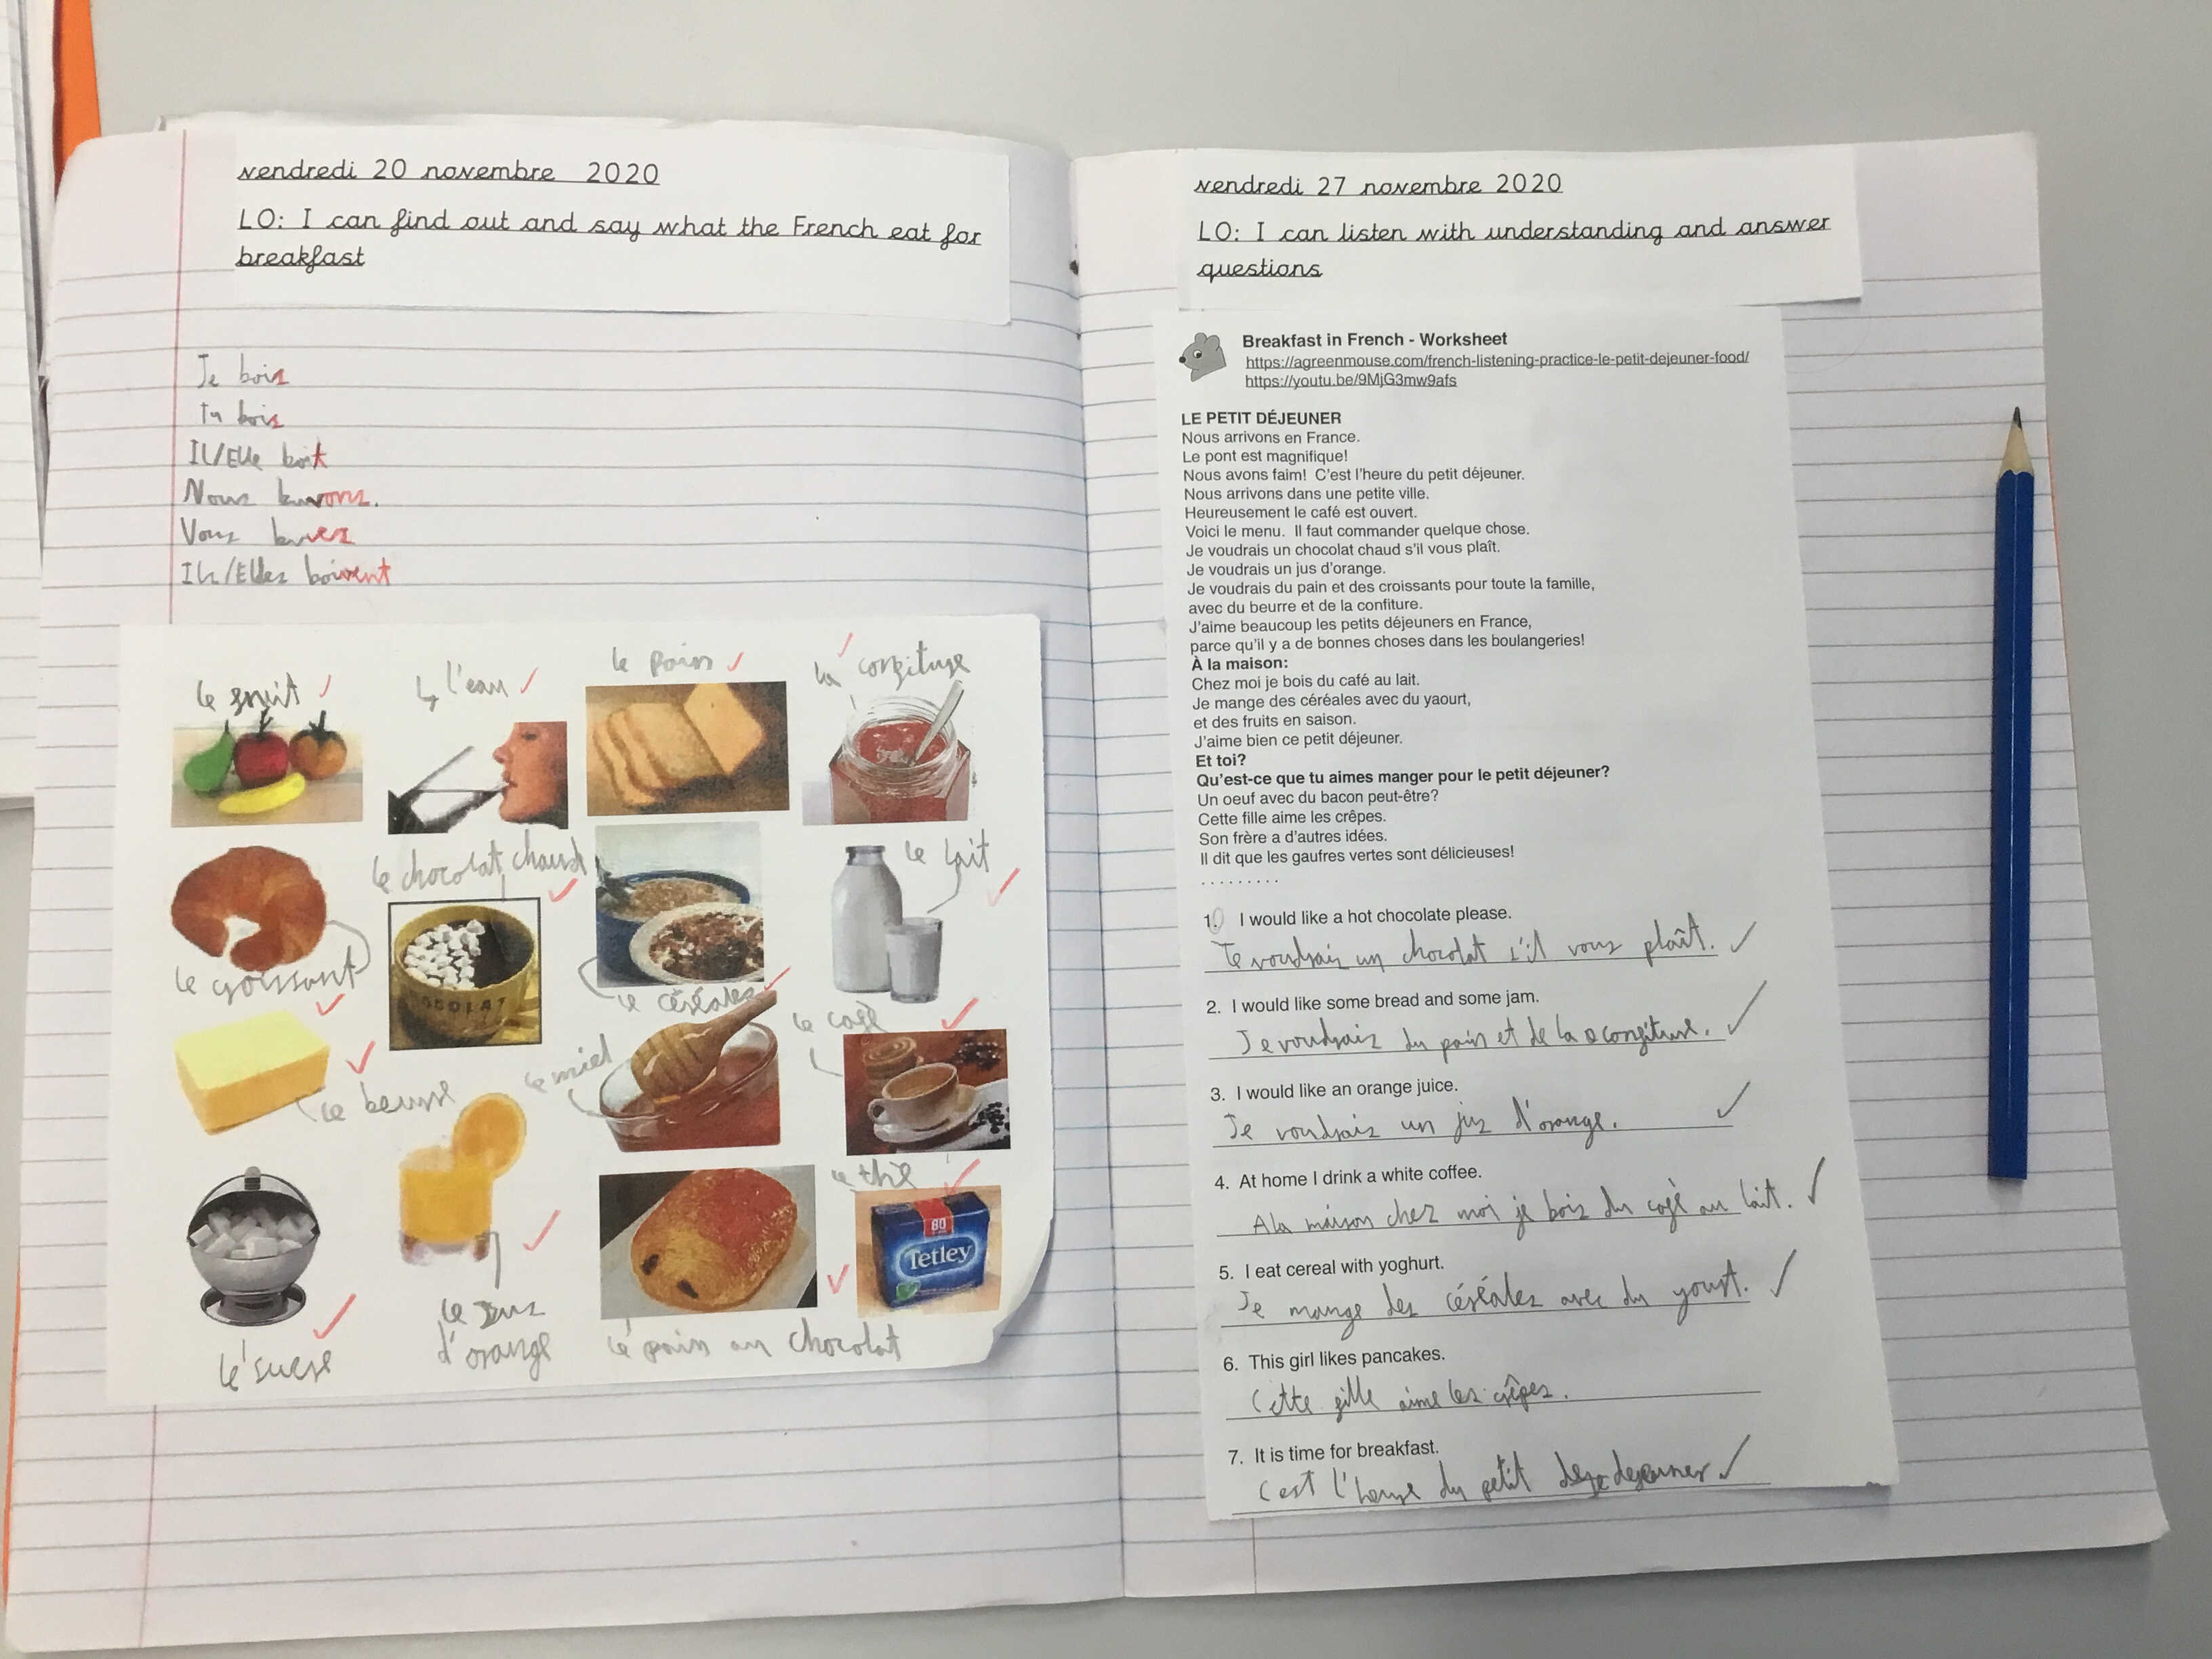 vendredi 20 novembre 2020
LO: I can find out and say what the French eat for
breakfast
Je bois
tu bois
Il/Elle boit
Nous buvons.
Vous buvez
Ils/Elles boivent
le fruit
l'eau
le pain
la confiture
le chocolat chaud
le lait
le croissant
le céréales
le café
le beurre
le miel
le thé
80
Tetley
le sucre
le jus
d'orange
le pain au chocolat
vendredi 27 novembre 2020
LO: I can listen with understanding and answer
questions
Breakfast in French - Worksheet
https://agreenmouse.com/french-listening-practice-le-petit-dejeuner-food/
https://youtu.be/9MjG3mw9afs
LE PETIT DÉJEUNER
Nous arrivons en France.
Le pont est magnifique!
Nous avons faim! C'est l'heure du petit déjeuner.
Nous arrivons dans une petite ville.
Heureusement le café est ouvert.
Voici le menu. Il faut commander quelque chose.
Je voudrais un chocolat chaud s'il vous plaît.
Je voudrais un jus d'orange.
Je voudrais du pain et des croissants pour toute la famille,
avec du beurre et de la confiture.
J'aime beaucoup les petits déjeuners en France,
parce qu'il y a de bonnes choses dans les boulangeries!
À la maison:
Chez moi je bois du café au lait.
Je mange des céréales avec du yaourt,
et des fruits en saison.
J'aime bien ce petit déjeuner.
Et toi?
Qu'est-ce que tu aimes manger pour le petit déjeuner?
Un oeuf avec du bacon peut-être?
Cette fille aime les crêpes.
Son frère a d'autres idées.
Il dit que les gaufres vertes sont délicieuses!
.........
1. I would like a hot chocolate please.
Je voudrais un chocolat s'il vous plaît.
2. I would like some bread and some jam.
Je voudrais du pain et de la confiture.
3. I would like an orange juice.
Je voudrais un jus d'orange.
4. At home I drink a white coffee.
A la maison chez moi je bois du café au lait.
5. I eat cereal with yoghurt.
Je mange des céréales avec du yourt.
6. This girl likes pancakes.
Cette fille aime les crêpes.
7. It is time for breakfast.
C'est l'heure du petit dejeuner